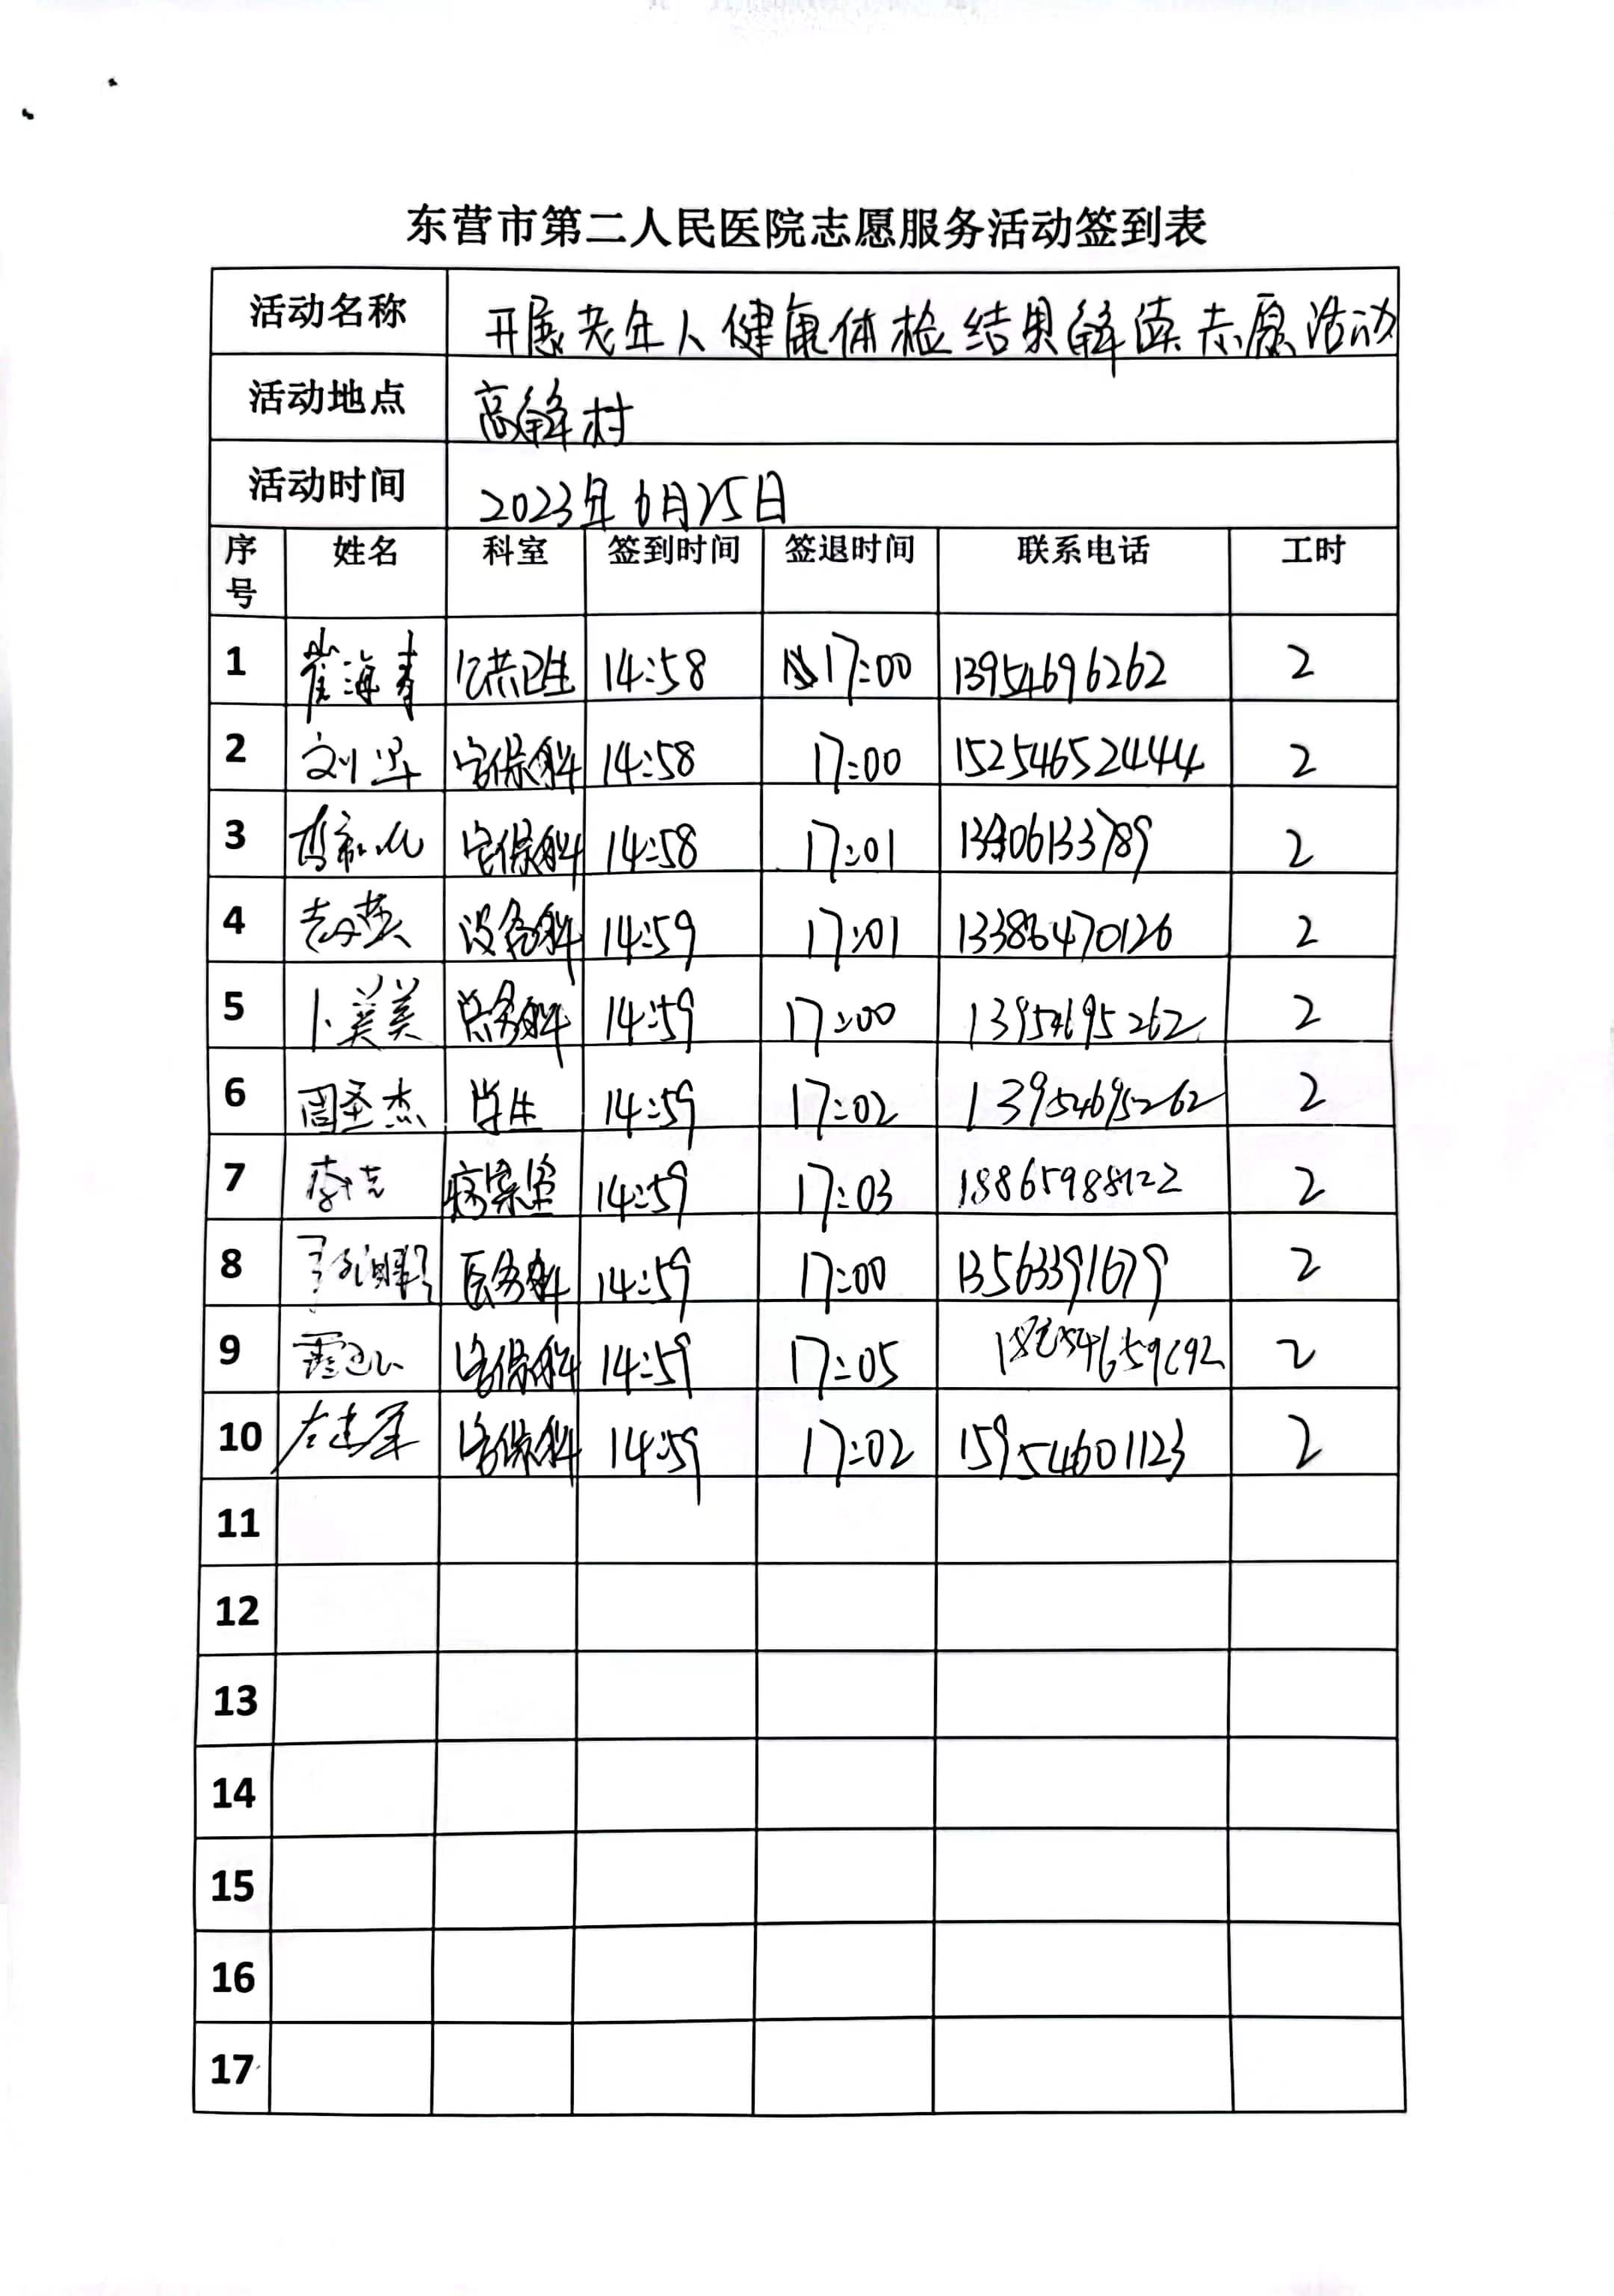 东营市第二人民医院志愿服务活动签到表
活动名称 开展老年人健康体检结果解读志愿活动
活动地点 高解村
活动时间 2023年6月25日
序号 姓名 科室 签到时间 签退时间 联系电话 工时
1 崔海青 公共卫生 14:58 17:00 13954696262 2
2 刘军 安保科 14:58 17:00 15254652444 2
3 安保科 14:58 17:01 2
4 设备科 14:59 17:01 2
5 卜美美 总务科 14:59 17:00 13954695262 2
6 周圣杰 学生 14:59 17:02 13954695262 2
7 病案室 14:59 17:03 18865988122 2
8 医务科 14:59 17:00 13563391679 2
9 安保科 14:59 17:05 2
10 左建军 安保科 14:59 17:02 15954601123 2
11
12
13
14
15
16
17